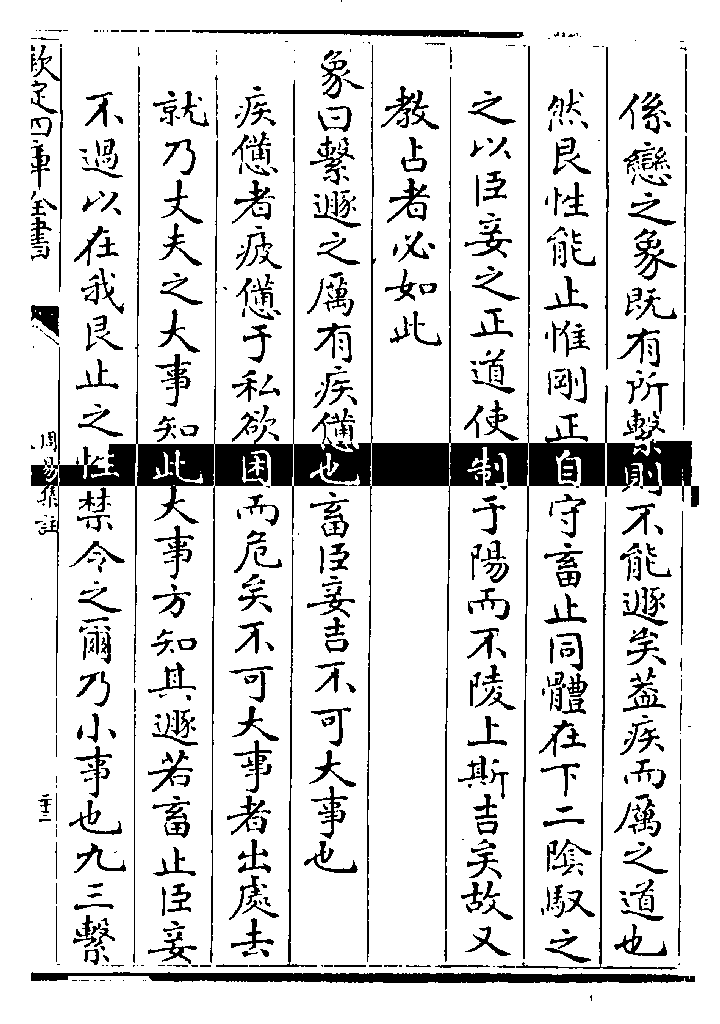 係戀之象既有所繫則不能遯矣葢疾而厲之道也
然艮性能止惟剛正自守畜止同體在下二陰馭之
之以臣妾之正道使制于陽而不陵上斯吉矣故又
教占者必如此
象曰繫遯之厲有疾憊也畜臣妾吉不可大事也
疾憊者疲憊于私欲困而危矣不可大事者出處去
就乃丈夫之大事知此大事方知其遯若畜止臣妾
不過以在我艮止之性禁令之爾乃小事也九三繫
欽定四庫全書
周易集註
二十三